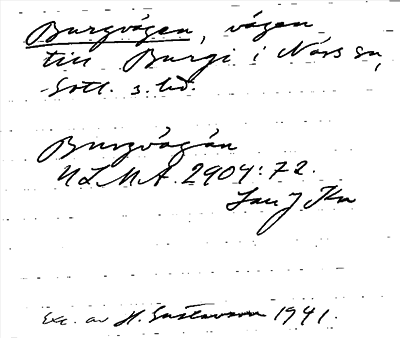 Burgvägen, vägen
till Burgi i När sn,
Gotl. s. hd.
Burgvägän
ULMA 2904:72.
Exc. av H. Gustavson 1941.